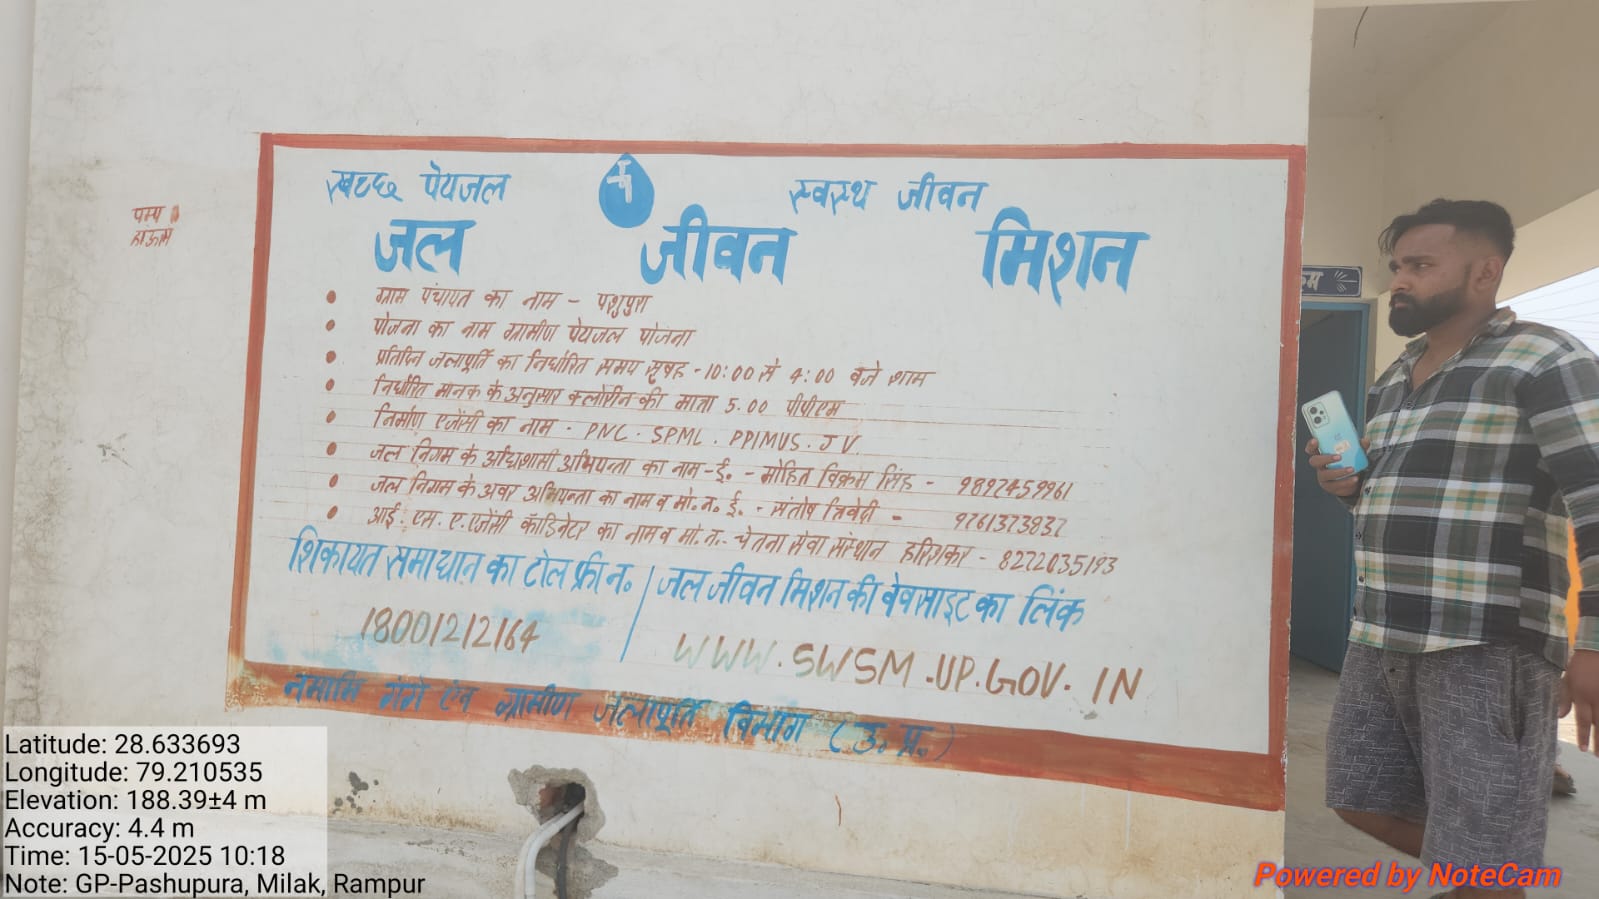 स्वच्छ पेयजल स्वस्थ जीवन
जल जीवन मिशन
पम्प
हाऊस
• ग्राम पंचायत का नाम - पशुपुरा
• योजना का नाम ग्रामीण पेयजल योजना
• प्रतिदिन जलापूर्ति का निर्धारित समय सुबह - 10:00 से 4:00 बजे शाम
• निर्धारित मानक के अनुसार क्लोरीन की मात्रा 5.00 पीपीएम
• निर्माण एजेंसी का नाम - PNC. SPML. PPIMUS. JV.
• जल निगम के अधिशासी अभियन्ता का नाम - ई. - मोहित विक्रम सिंह - 9897459961
• जल निगम के अवर अभियन्ता का नाम व मो. न. ई. - संतोष त्रिवेदी - 9761373837
• आई. एस. ए. एजेंसी कॉडिनेटर का नाम व मो. न. - चेतना सेवा संस्थान हरिशंकर - 8272035193
शिकायत समाधान का टोल फ्री न. / जल जीवन मिशन की वेवसाइट का लिंक
18001212164 WWW.SWSM.UP.GOV.IN
नमामि गंगे एंव ग्रामीण जलापूर्ति विभाग (उ. प्र.)
Latitude: 28.633693
Longitude: 79.210535
Elevation: 188.39±4 m
Accuracy: 4.4 m
Time: 15-05-2025 10:18
Note: GP-Pashupura, Milak, Rampur
Powered by NoteCam